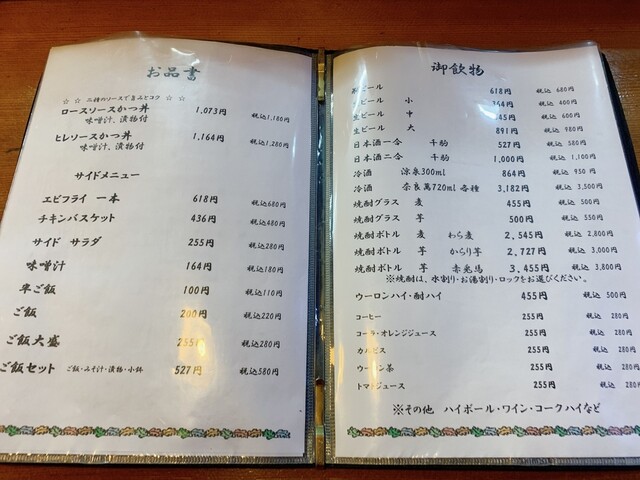 お品書
☆ ☆ 二種のソースで
ロースソースかつ丼 1,073円 税込1,180円
味噌汁、漬物付
ヒレソースかつ丼 1,164円 税込1,280円
味噌汁、漬物付
サイドメニュー
エビフライ 一本 618円 税込680円
チキンバスケット 436円 税込480円
サイド サラダ 255円 税込280円
味噌汁 164円 税込180円
半ご飯 100円 税込110円
ご飯 200円 税込220円
ご飯大盛 255円 税込280円
ご飯セット ご飯・みそ汁・漬物・小鉢 527円 税込580円
御飲物
ビール 618円 税込 680円
ビール 小 364円 税込 400円
生ビール 中 545円 税込 600円
生ビール 大 891円 税込 980円
日本酒一合 千駒 527円 税込 580円
日本酒二合 千駒 1,000円 税込 1,100円
冷酒 涼泉300ml 864円 税込 950円
冷酒 奈良萬720ml各種 3,182円 税込 3,500円
焼酎グラス 麦 455円 税込 500円
焼酎グラス 芋 500円 税込 550円
焼酎ボトル 麦 わら麦 2,545円 税込 2,800円
焼酎ボトル 芋 からり芋 2,727円 税込 3,000円
焼酎ボトル 芋 赤兎馬 3,455円 税込 3,800円
※焼酎は、水割り・お湯割り・ロックをお選びください。
ウーロンハイ・酎ハイ 455円 税込 500円
コーヒー 255円 税込 280円
コーラ・オレンジジュース 255円 税込 280円
カルピス 255円 税込 280円
ウーロン茶 255円 税込 280円
トマトジュース 255円 税込 280円
※その他 ハイボール・ワイン・コークハイなど